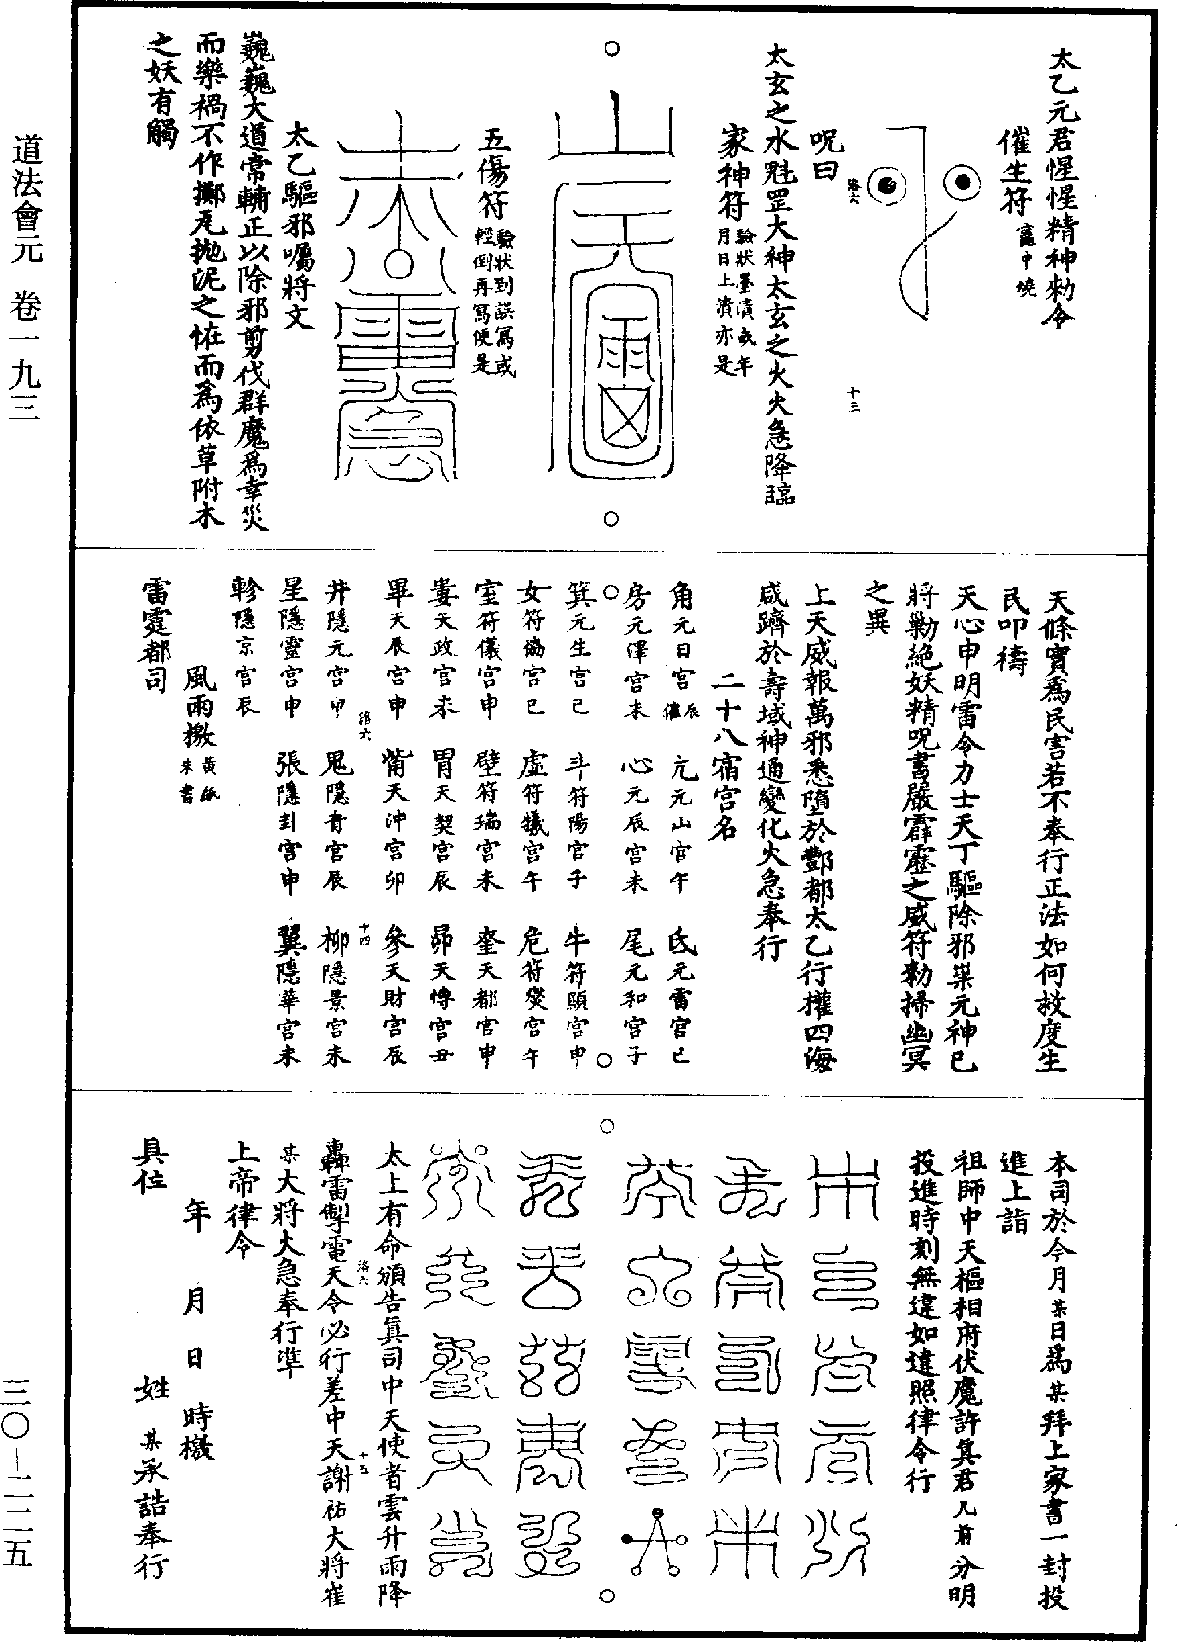 道法會元　卷一九三
三〇－二二五
太乙元君惺惺精神勑令
催生符竈中燒
呪曰
太玄之水魁罡大神太玄之火火急降臨
家神符驗狀墨漬或年月日上漬亦是
五傷符驗狀到誤寫或輕倒再寫便是
太乙驅邪囑將文
巍巍大道常輔正以除邪剪伐群魔爲幸災
而樂禍不作擲瓦拋泥之恠而爲依草附木
之妖有觸
天條實爲民害若不奉行正法如何救度生
民叩禱
天心申明雷令力士天丁驅除邪祟元神已
將勦絕妖精呪書嚴霹靂之威符勑掃幽冥
之異
上天威報萬邪悉墮於酆都太乙行權四海
咸躋於壽域神通變化火急奉行
二十八宿宮名
角元日宮辰　亢元山宮午　氐元雷宮巳
房元澤宮未　心元辰宮未　尾元和宮子
箕元生宮己　斗符陽宮子　牛符頤宮申
女符獝宮巳　虛符犧宮午　危符燮宮午
室符儀宮申　壁符瑞宮未　奎天都宮申
婁天政宮未　胃天契宮辰　昴天愽宮丑
畢天辰宮申　觜天沖宮卯　參天財宮辰
井隱元宮申　鬼隱青宮辰　柳隱景宮未
星隱靈宮申　張隱封宮申　翼隱華宮未
軫隱京宮辰
風雨檄黃紙朱書
雷霆都司
本司於今月某日爲某拜上家書一封投
進上詣
祖師中天樞相府伏魔許眞君几前分明
投進時刻無違如違照律令行
太上有命頒告眞司中天使者雲升雨降
轟雷掣電天令必行差中天謝祐大將崔
某大將大急奉行準
上帝律令
年　月　日　時檄
具位　姓　某承誥奉行